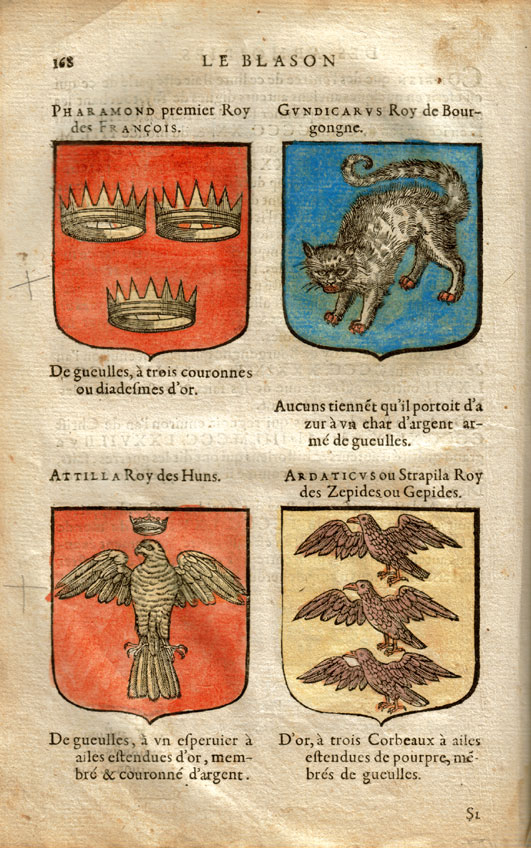 168
LE BLASON
PHARAMOND premier Roy
des FRANÇOIS.
GVNDICARVS Roy de Bour-
gongne.
De gueulles, à trois couronnes
ou diadeſmes d'or.
Aucuns tiennẽt qu'il portoit d'a
zur à vn chat d'argent ar-
mé de gueulles.
ATTILLA Roy des Huns.
ARDATICVS ou Strapila Roy
des Zepides ou Gepides.
De gueulles, à vn eſperuier à
ailes eſtendues d'or, mem-
bré & couronné d'argent.
D'or, à trois Corbeaux à ailes
eſtendues de pourpre, mẽ-
brés de gueulles.
S1